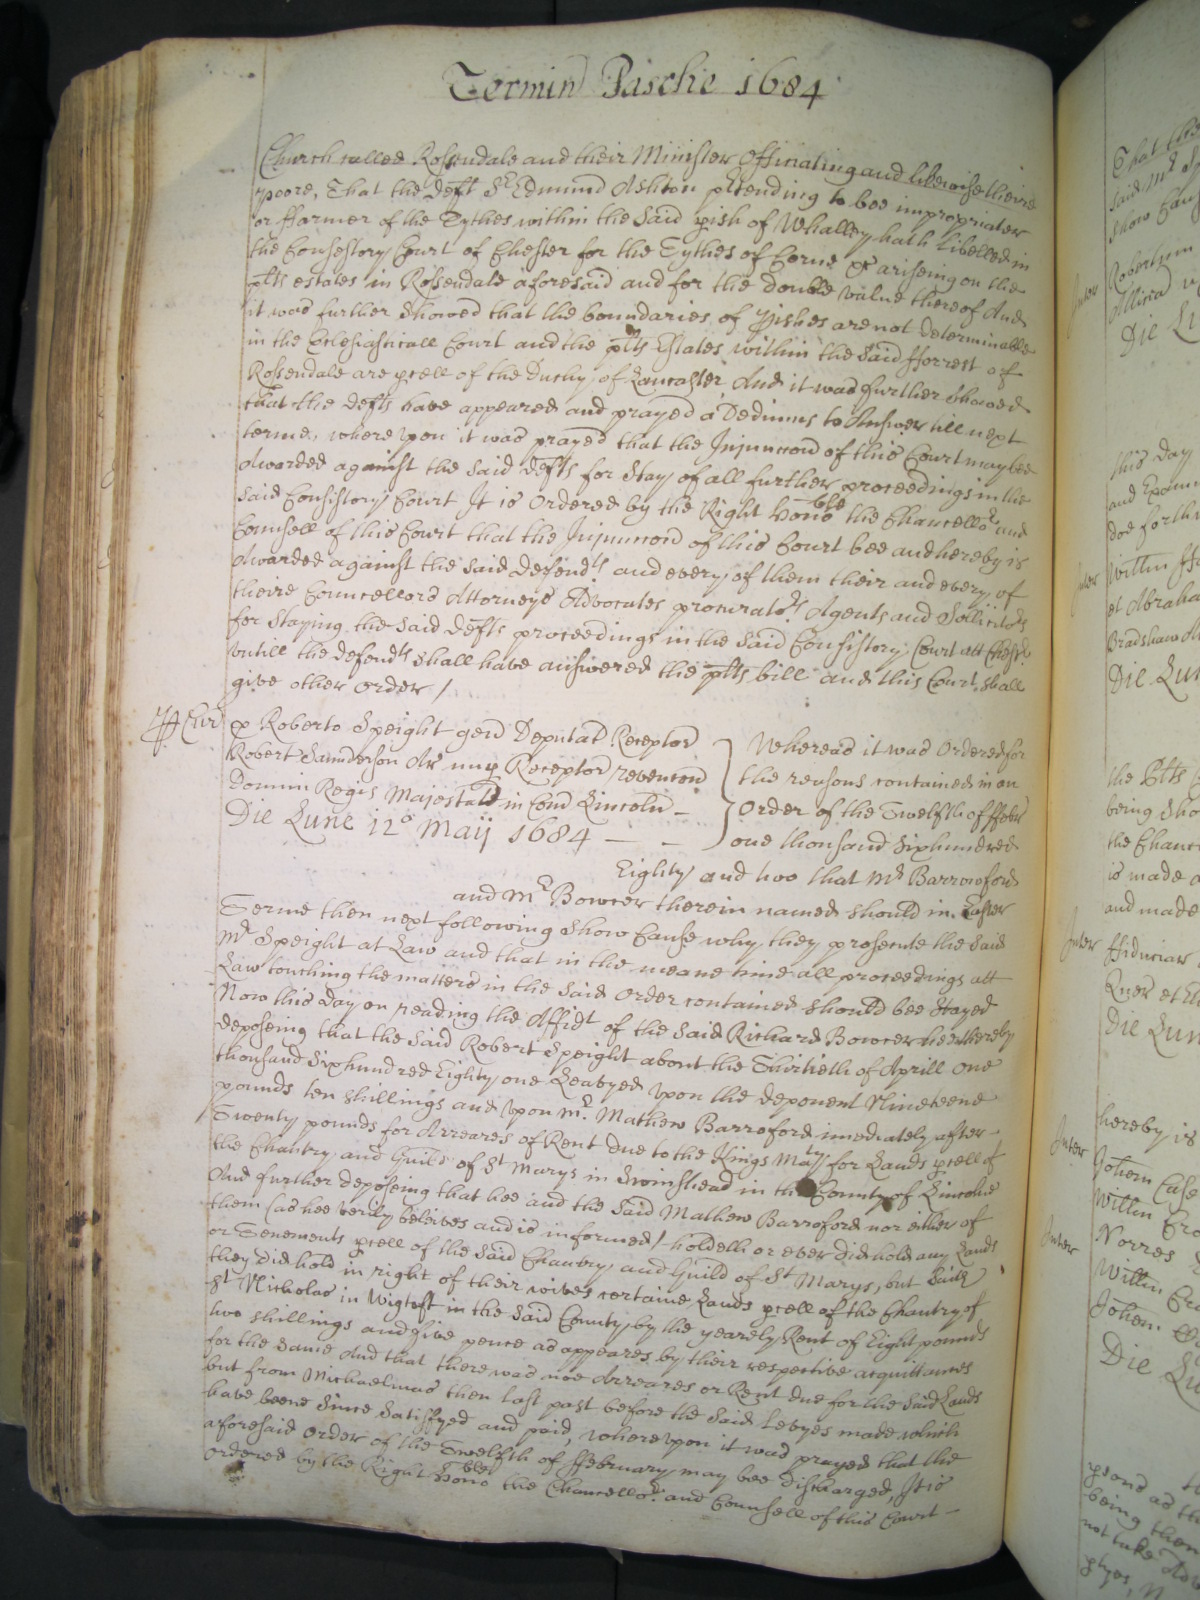 Termin Pasche 1684
Church called Rossendale and their Minister Officiating and likewise theire
poore, That the Deft Sr Edmund Ashton ptending to bee impropriator
or ffarmer of the Tythes within the said pish of Whalley hath Libelled in
the Consistory Court of Chester for the Tythes of Corne &c ariseing on the
plts estates in Rossendale aforesaid and for the double value thereof And
it was further Shewed that the boundaries of pishes are not determinable
in the Eclesiasticall Court and the plts Estates within the said fforrest of
Rossendale are pcell of the Duchy of Lancaster And it was further shewed
that the Defts have appeared and prayed a Dedimus to Answer till next
terme, where upon it was prayed that the Injuncion of this Court may bee
Awarded against the said Defts for Stay of all further proceedings in the
said Consistory Court It is Ordered by the Right Honoble the Chancellor and
Councell of this Court that the Injuncion of this Court bee and hereby is
Awarded against the said Defendts and every of them their and every of
theire Councellors Attorneys Advocates procurators Agents and Sollicitors
for Staying the said Defts proceedings in the said Consistory Court att Chestr
untill the defendts shall have answered the plts bill and this Court shall
give other order /
p Roberto Speight gen Deputat Receptor
Robert Saunderson Ar nup Receptor revencon
Domini Regis Majestat in Com Lincoln –
Die Lune 12o Maij 1684 – –
Whereas it was Ordered for
the reasons contained in an
Order of the Twelfth of ffebr
one thousand Sixhundred
Eighty and two that Mr Barroford
and Mr Bowcer therein named should in Easter
Terme then next following Show Cause why they prosecute the said
Mr Speight at Law and that in the meane time all proceedings att
Law touching the matters in the said Order contained should bee Stayed
Now this day on reading the Affidt of the said Richard Bowcer hee thereby
deposeing that the said Robert Speight about the Thirtieth of Aprill one
thousand Sixhundred Eighty one Leavyed upon the deponent Nineteene
pounds ten shillings and upon Mr Mathew Barroford imediately after –
Twenty pounds for Arreares of Rent due to the Kings Maty for Lands pcell of
the Chantry and Guild of St Marys in Swinshead in the County of Lincolne
And further deposeing that hee and the said Mathew Barroford nor either of
them (as hee verily beleives and is informed) holdeth or ever did hold any Lands
or Tenements pcell of the said Chantry and Guild of St Marys, but saith
they did hold in right of their wives certaine Lands pcell of the Chantry of
St Nicholas in Wigtoft in the said County by the yearely Rent of Eight pounds
two shillings and five pence as appeares by their respective acquittances
for the same And that there was noe Arreares or Rent due for the said Lands
but from Michaelmas then last past before the said Levyes made which
have beene since Satisfyed and paid, whereupon it was prayed that the
aforesaid Order of the Twelfth of ffebruary may bee discharged, It is
Ordered by the Right Honoble the Chancellor and Councell of this Court –
That this
said Mr
show Caus
Inter Robertum
Die Lu
this day
and Exami
doe forth
Inter Willm
et Abraha
Bradshaw
Die Lun
the Plts
being sho
the Chanc
is made
and made
Inter ffiduciar
Quer et
Die Lun
hereby is
Inter Johem Case
Willm
Inter Norres
Willm
Johem
Die Lu
being then
not take